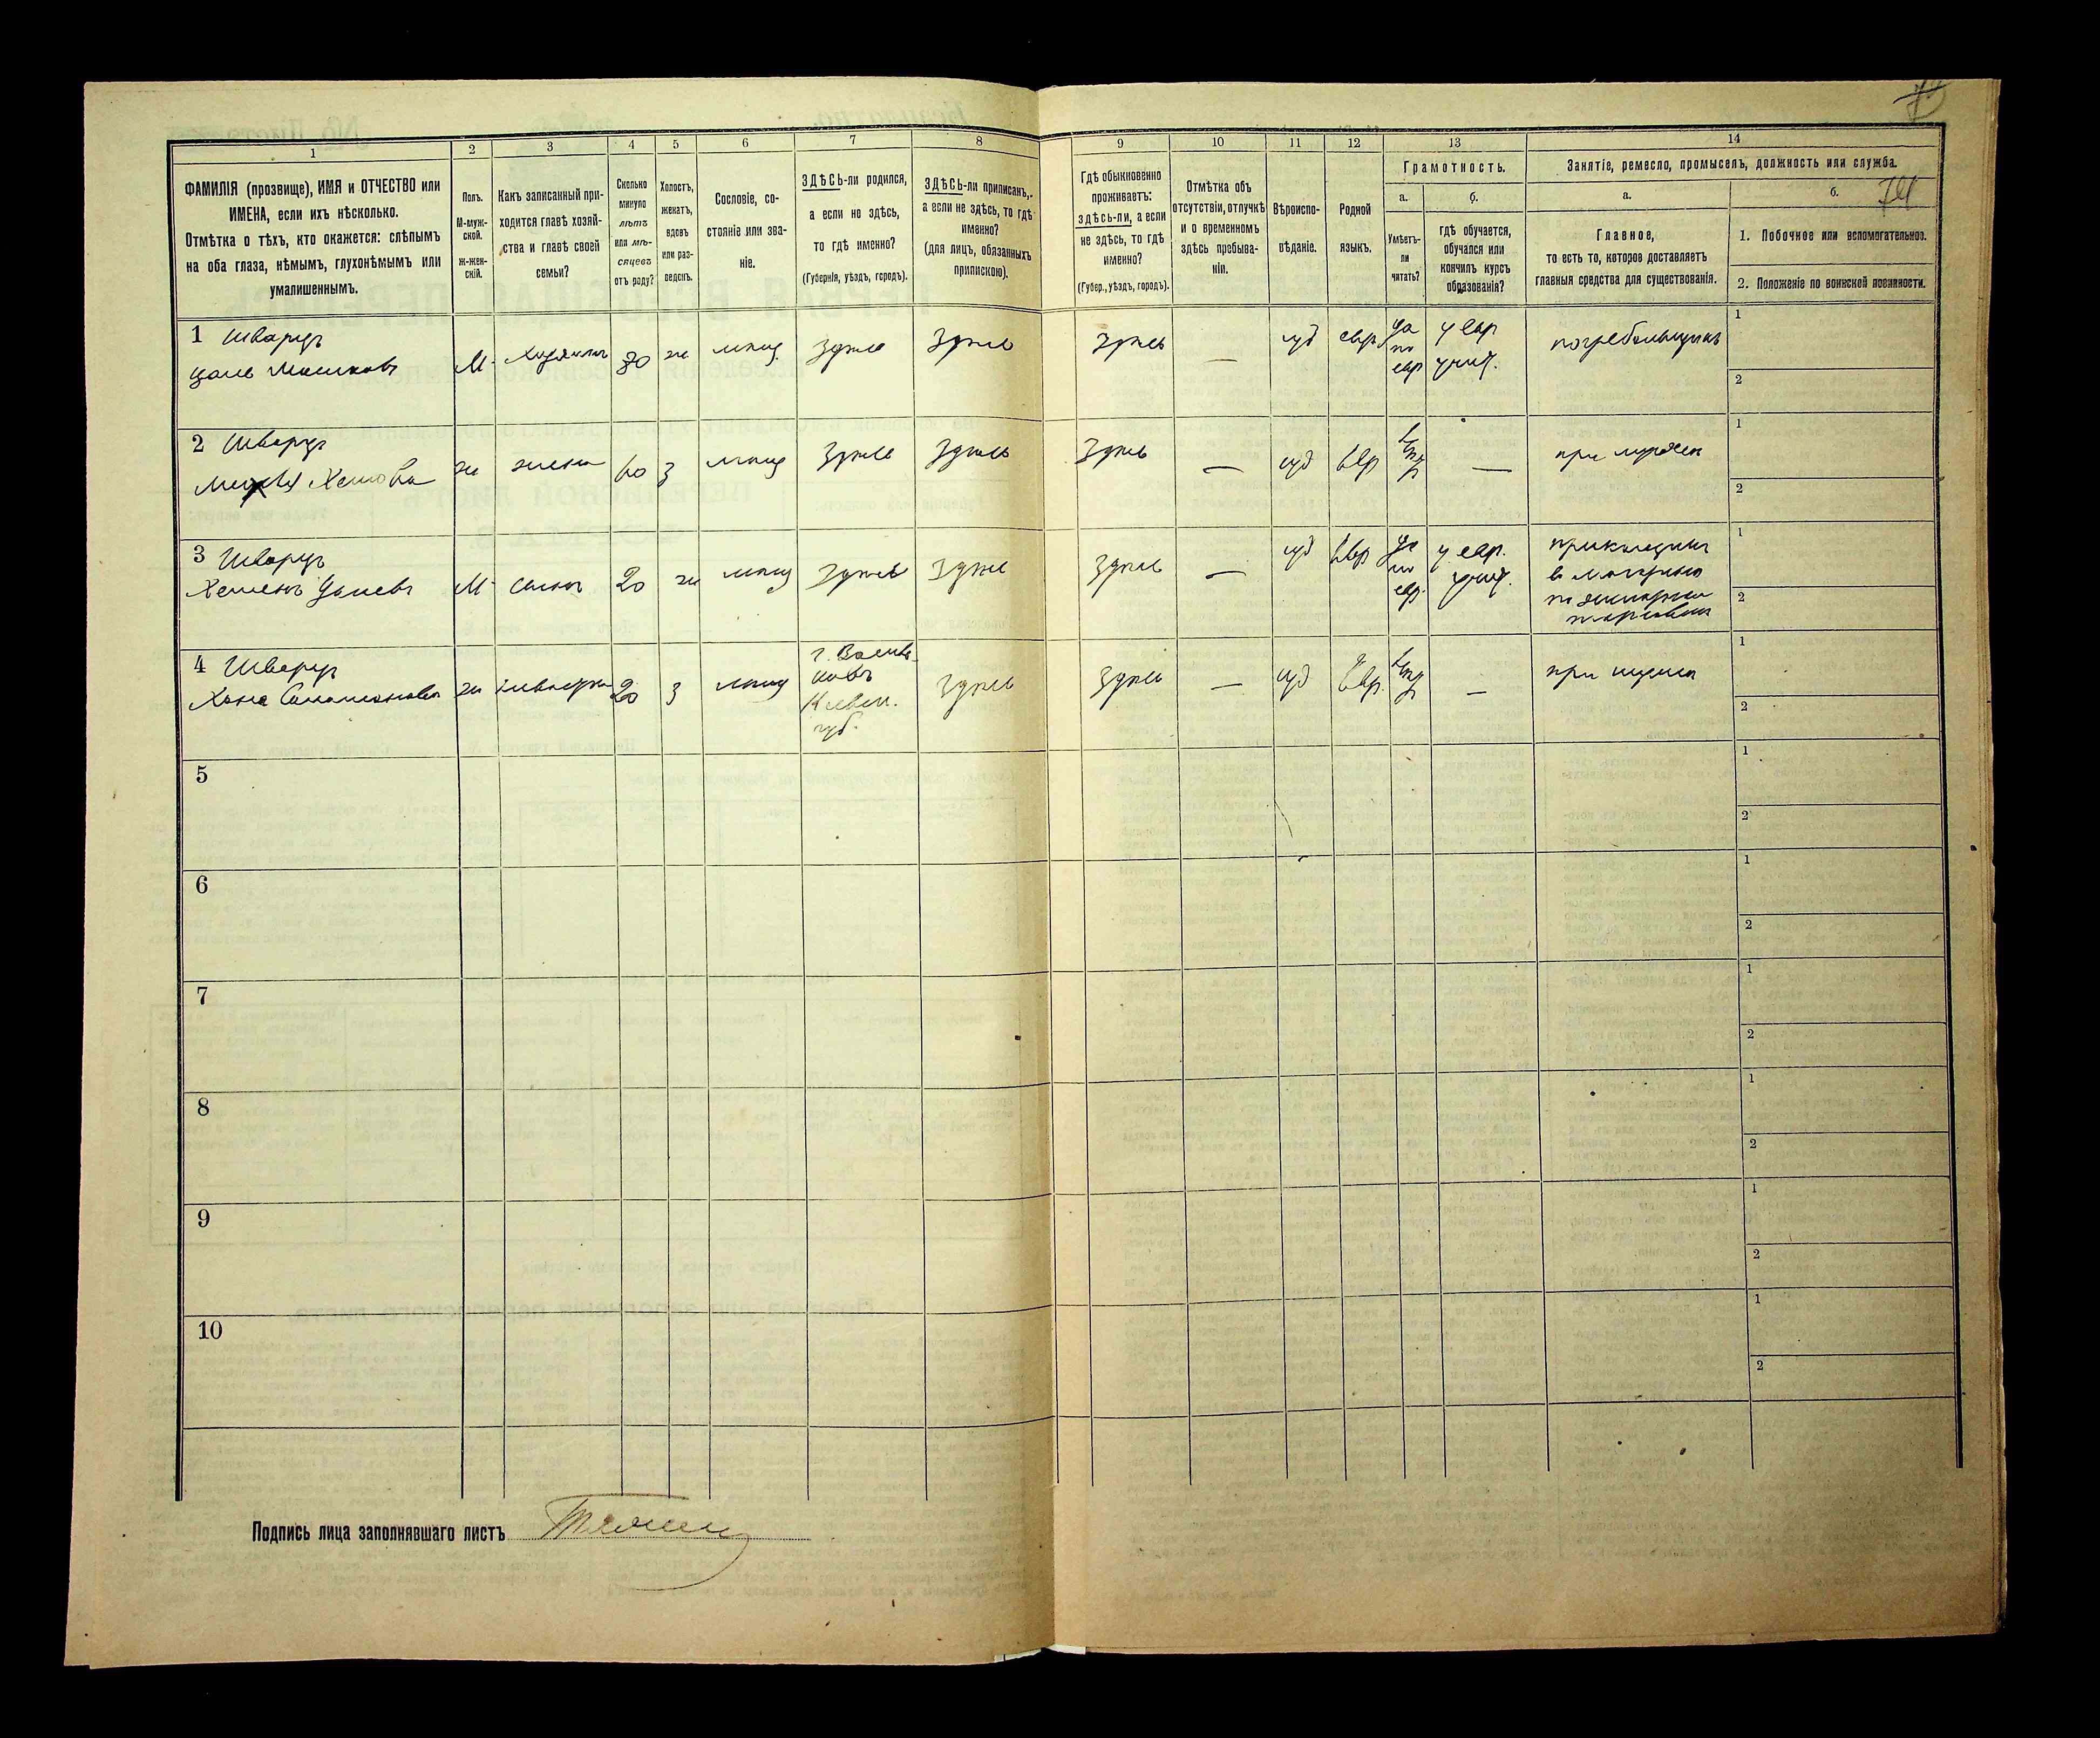 74
1
2
3
4
5
6
7
8
9
10
11
12
13
14
ФАМИЛІЯ (прозвище), ИМЯ и ОТЧЕСТВО или
ИМЕНА, если ихъ нѣсколько.
Отмѣтка о тѣхъ, кто окажется: слѣпымъ
на оба глаза, нѣмымъ, глухонѣмымъ или
умалишеннымъ.
Полъ.
М-муж-
ской.
Ж-жен-
скій.
Какъ записанный при-
ходится главѣ хозяй-
ства и главѣ своей
семьи?
Сколько
минуло
лѣтъ
или мѣ-
сяцевъ
отъ роду?
Холостъ,
женатъ,
вдовъ
или раз-
веденъ.
Сословіе, со-
стояніе или зва-
ніе.
ЗДѢСЬ-ли родился,
а если не здѣсь,
то гдѣ именно?
(Губернія, уѣздъ, городъ).
ЗДѢСЬ-ли приписанъ,
а если не здѣсь, то гдѣ
именно?
(для лицъ, обязанныхъ
припискою).
Гдѣ обыкновенно
проживаетъ:
здѣсь-ли, а если
не здѣсь, то гдѣ
именно?
(Губер., уѣздъ, городъ).
Отмѣтка объ
отсутствіи, отлучкѣ
и о временномъ
здѣсь пребыва-
ніи.
Вѣроиспо-
вѣданіе.
Родной
языкъ.
Грамотность.
а.
Умѣетъ-
ли
читать?
б.
гдѣ обучается,
обучался или
кончилъ курсъ
образованія?
Занятіе, ремесло, промыселъ, должность или служба.
а.
Главное,
то есть то, которое доставляетъ
главныя средства для существованія.
б.
1. Побочное или вспомогательное.
2. Положеніе по воинской повинности.
1 Шварцъ
М
60
ж
мѣщ
здѣсь
здѣсь
здѣсь
—
іуд
евр
да
по
евр
у евр
учит.
1
2
2 Шварцъ
ж
жена
60
з
мѣщ
здѣсь
здѣсь
здѣсь
—
іуд
евр
нѣтъ
—
при мужѣ
1
2
3 Шварцъ
М
сынъ
20
ж
мѣщ
здѣсь
здѣсь
здѣсь
—
іуд
евр
да
по
евр.
у евр.
учит.
прикащикъ
1
2
4 Шварцъ
Хана
ж
невѣстка
20
з
мѣщ
г. Василь-
ковъ
Киевск.
губ.
здѣсь
здѣсь
—
іуд
евр.
нѣтъ
—
при мужѣ
1
2
5
1
2
6
1
2
7
1
2
8
1
2
9
1
2
10
1
2
Подпись лица заполнявшаго листъ